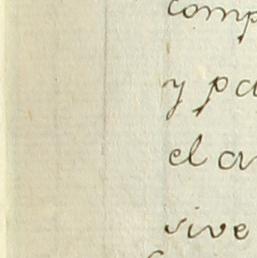 comp
y pa
el a
vive